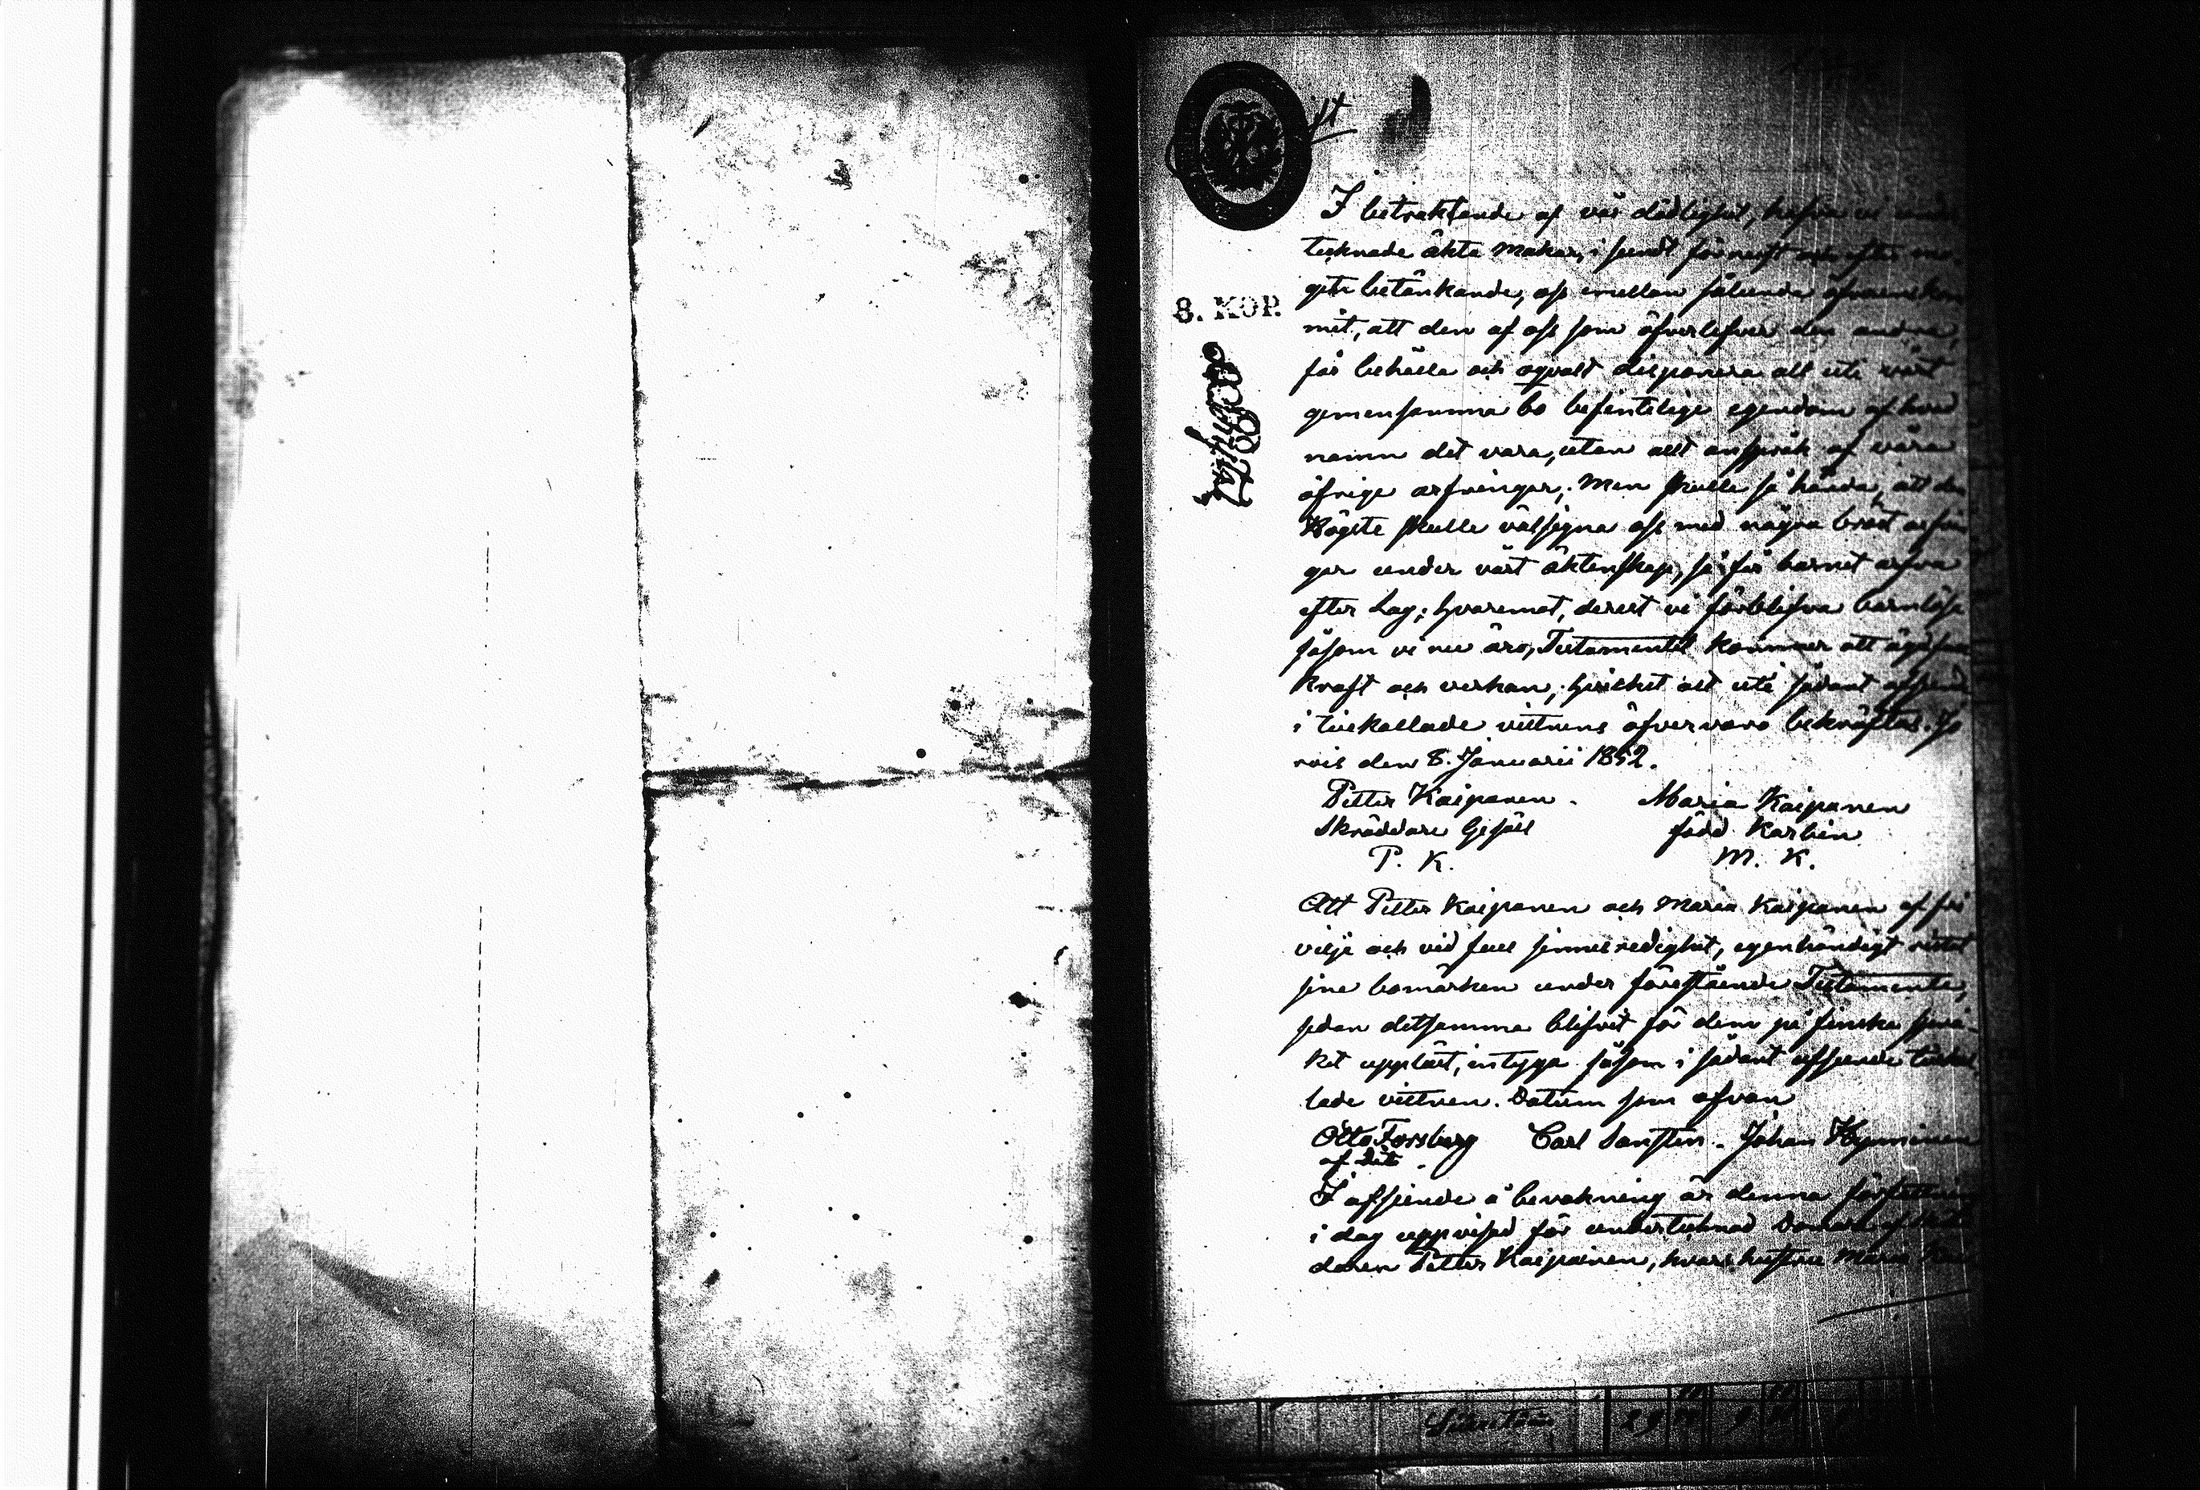 I betraktande af vår dödlighet, hafva vi under
tecknade äkta makar, i sundt förnuft och efter mo-
get betänkande, oss emellan sålunda öfverenskom
mit, att den af oss som öfverlefver den andra,
får behålla och oqvalt disponera allt uti vårt
gemensamma bo befinteliga egendom af hvad
namn det vara, utan allt anspråk af våra
öfriga arfvingar; Men skulle så hända, att den
Högste skulle välsigna oss med några bröst arfvin
gar under vårt äktenskap, så får barnet arfva
efter Lag; hvaremot, derest vi förblifva barnlösa
såsom vi nu äro, Testamentet kommer att äga sin
kraft och verkan; hvilket allt uti sådant afseende
i tilkallade vittnens öfvervaro bekräftas. Jo
rois den 8. Januarii 1852.
Petter Kaipanen. Maria Kaipanen
Skräddare Gesäll född Karhin
P. K. M. K.
Att Petter Kaipanen och Maria Kaipanen af fri
vilje och vid full sinnesredighet, egenhändigt ristat
sine bomärken under förestående Testamente,
sedan detsamma blifvit för dem på finska språ-
ket uppläst, intyga såsom i sådant afseende tilkal
lade vittnen. Datum som ofvan
Otto Forsberg Carl Johan
I afseende å bevakning är denna författning
i dag uppvisad för undertecknad Domare af
daren Petter Kaipainen, hvars hustru Maria
8. KOP.